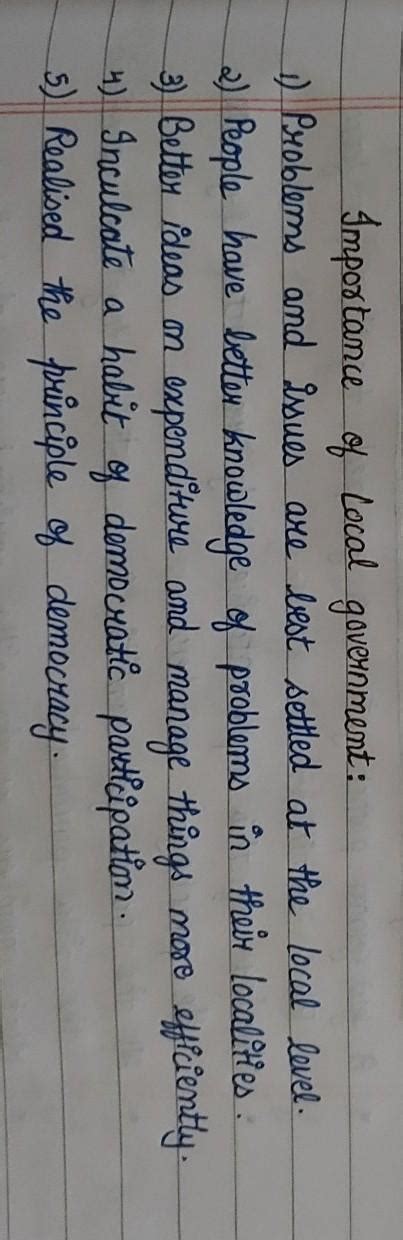 Importance of Local government:
1) Problems and issues are best settled at the local level.
2) People have better knowledge of problems in their localities.
3) Better ideas on expenditure and manage things more efficiently.
4) Inculcate a habit of democratic participation.
5) Realised the principle of democracy.